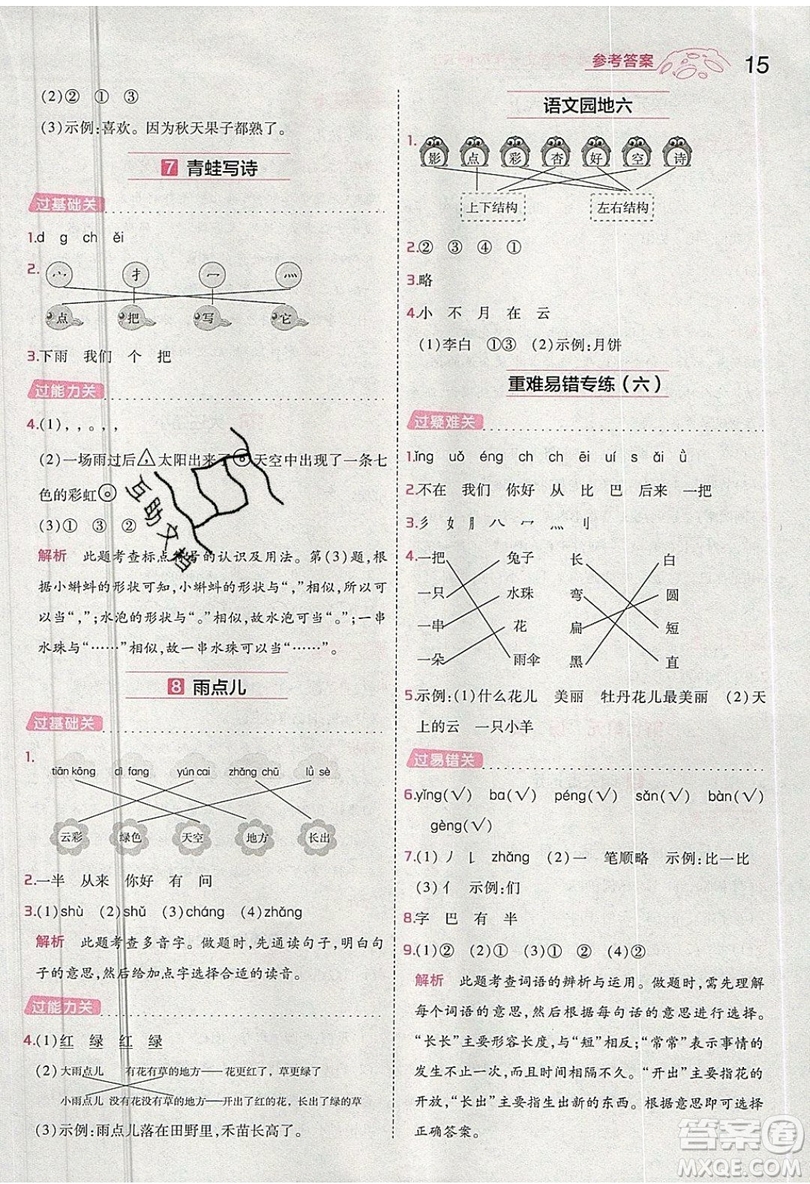 参考答案 15
(2)② ① ③
(3)示例:喜欢。因为秋天果子都熟了。
7 青蛙写诗
过基础关
1.d g ch ěi
2.
丷 扌 冖 灬
点 把 写 它
3.下雨 我们 个 把
过能力关
4.(1), , , , 。
(2)一场雨过后△太阳出来了◎天空中出现了一条七
色的彩虹◎
(3)① ③ ②
解析 此题考查标点符号的认识及用法。第(3)题,根
据小蝌蚪的形状可知,小蝌蚪的形状与“,”相似,所以可
以当“,”;水泡的形状与“。”相似,故水泡可当“。”;一串
水珠与“……”相似,故一串水珠可以当“……”。
8 雨点儿
过基础关
1.
tiān kōng dì fang yún cai zhǎng chū lǜ sè
云彩 绿色 天空 地方 长出
2.一半 从来 你好 有 问
3.(1)shù (2)shǔ (3)cháng (4)zhǎng
解析 此题考查多音字。做题时,先通读句子,联系句
子的意思,再给加点字选择合适的读音。
过能力关
4.(1)红 绿 红 绿
(2) 大雨点儿 有花有草的地方——花更红了,草更绿了
小雨点儿 没有花没有草的地方——开出了红的花,长出了绿的草
(3)示例:雨点儿落在田野里,禾苗长高了。
语文园地六
1.
影 点 彩 杏 好 空 诗
上下结构 左右结构
2.② ③ ④ ①
3.略
4.小 不 月 在 云
(1)李白 ①③ (2)示例:月饼
重难易错专练(六)
过疑难关
1.īng uǒ éng ch ch ēi uí s ǎi ǜ
2.不在 我们 你好 从 比 巴 后来 一把
3.彡 女 阝 八 冖 灬 扌 纟
4.一把 兔子 长 白
一只 水珠 弯 圆
一串 花 扁 短
一朵 雨伞 黑 直
5.示例:(1)什么花儿 美丽 牡丹花儿最美丽 (2)天
上的云 一只小羊
过易错关
6.yǐng(√) ba(√) péng(√) sǎn(√) bàn(√)
gèng(√)
7.(1)丿 乚 zhǎng (2)一 笔顺略 示例:比一比
(3)亻 示例:们
8.字 巴 有 半
9.(1)② (2)① (3)① (4)②
解析 此题考查词语的辨析与运用。做题时,需先理解
每个词语的意思,再结合每句话的意思选择正确的词语。
“长长”主要形容长度,与“短”相反;“常常”表示事情的
发生不止一次,而且时间相隔不久。“开出”主要指花的
开放,“长出”主要指生出新的东西。根据意思,可选择
正确答案。
互助文档
答案圈
MXQE.COM